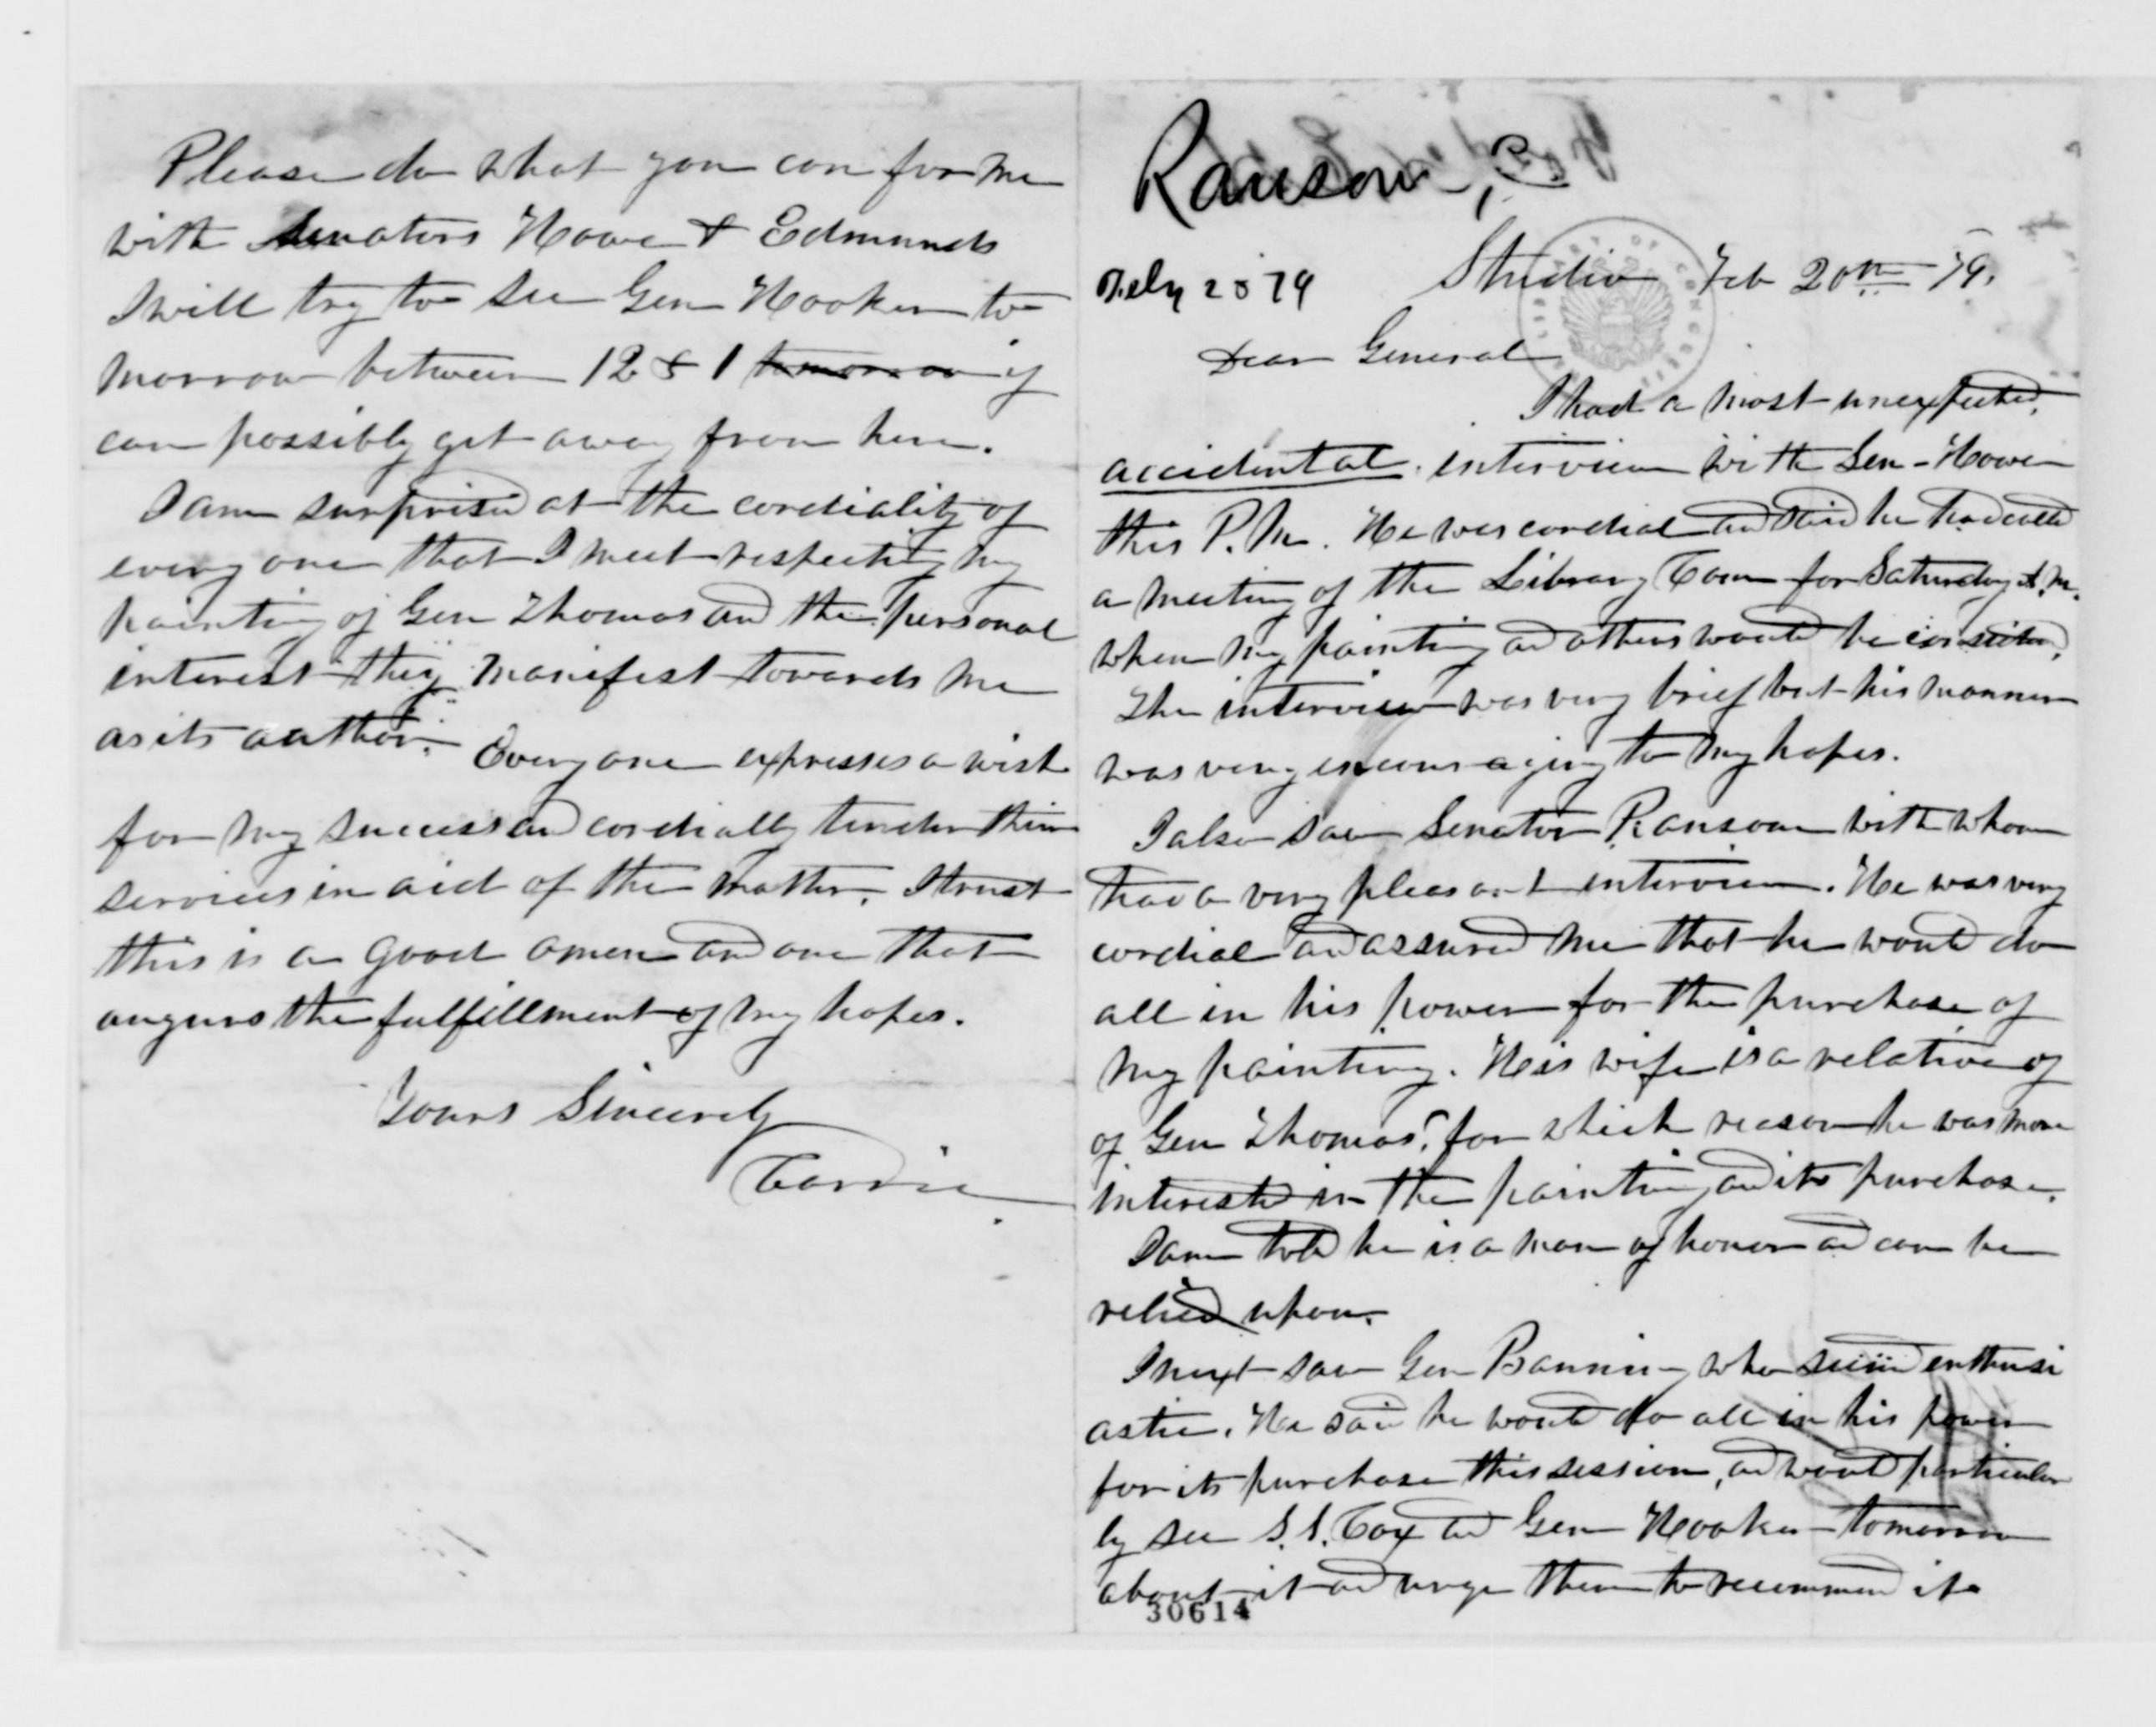 Ransom, C
Feby 20 79
Studio Feb 20th 79.
Dear General
I had a most unexpected,
accidental interview with Sen-Howe
this P.M. He was cordial and said he had called
a meeting of the Library Com for Saturday A.M.
when my painting and others would be considered.
The interview was very brief but his manner
was very encouraging to my hopes.
I also saw Senator Ransom with whom
had a very pleasant interview. He was very
cordial and assured me that he would do
all in his power for the purchase of
my painting. His wife is a relative of
of Gen Thomas, for which reason he was more
interested in the painting and its purchase.
I am told he is a man of honor and can be
relied upon.
I next saw Gen Banning who seemed enthusi
astic. He said he would do all in his power
for its purchase this session, and would particular
ly see S.S. Cox and Gen Hooker tomorrow
about it and urge them to recommend it
30614
Please do what you can for me
with Senators Howe & Edmunds
I will try to see Gen Hooker to
morrow between 12 & 1 tomorrow if
can possibly get away from here.
I am surprised at the cordiality of
every one that I meet respecting my
painting of Gen Thomas and the personal
interest they manifest towards me
as its author. Every one expresses a wish
for my success and cordially tender their
services in aid of the matter. I trust
this is a good omen and one that
augurs the fulfillment of my hopes.
Yours Sincerely
Carrie